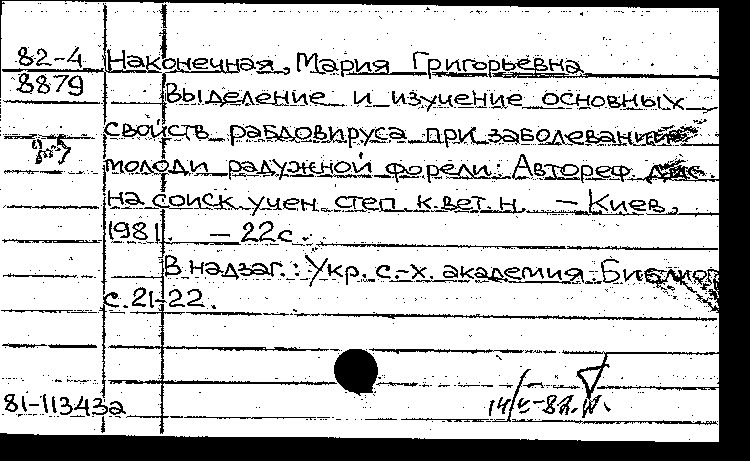 82-4 Наконечная, Мария Григорьевна
8879 Выделение и изучение основных
свойств рабдовируса при заболевании
молоди радужной форели: Автореф. дис.
на соиск. учен. степ. к.вет.н. — Киев,
1981. — 22с.
В надзаг.: Укр. с.-х. академия. Библиог
с. 21-22.
81-11343а